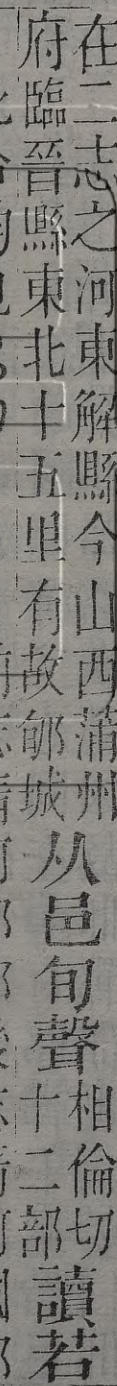 在二志之河東解縣今山西蒲州
府臨晉縣東北十五里有故郇城
从邑旬聲
相倫切
十二部
讀若